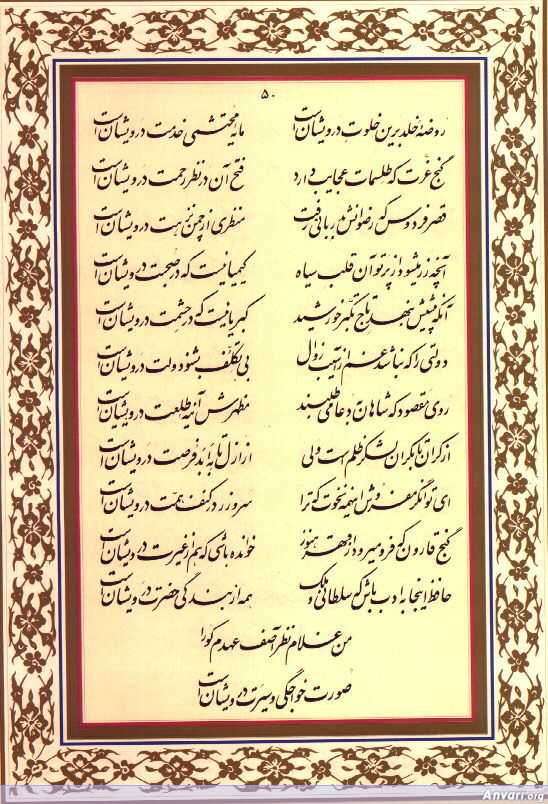 ۵۰
روضهٔ خلد برین خلوت درویشان است مایهٔ محتشمی خدمت درویشان است
گنج عزت که طلسمات عجایب دارد فتح آن در نظر رحمت درویشان است
قصر فردوس که رضوانش بدربانی رفت منظری از چمن نزهت درویشان است
آنچه زر میشود از پرتو آن قلب سیاه کیمیائیست که در صحبت درویشان است
آنکه پیشش بنهد تاج تکبر خورشید کبریائیست که در حشمت درویشان است
دولتی را که نباشد غم از آسیب زوال بی تکلف بشنو دولت درویشان است
روی مقصود که شاهان به دعا می طلبند مظهرش آینه طلعت درویشان است
از کران تا بکران لشکر ظلم است ولی از ازل تا به ابد فرصت درویشان است
ای توانگر مفروش اینهمه نخوت که ترا سر و زر در کنف همت درویشان است
گنج قارون که فرو میرود از قهر هنوز خوانده باشی که هم از غیرت درویشان است
حافظ اینجا به ادب باش که سلطانی و ملک همه از بندگی حضرت درویشان است
من غلام نظر آصف عهدم کورا
صورت خواجگی و سیرت درویشان است
Anvari.org